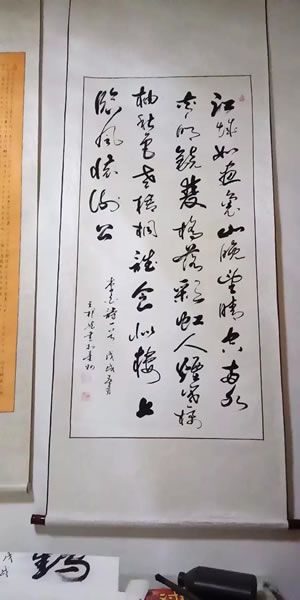 江城如畫裏山晚望晴空兩水
夾明鏡雙橋落彩虹人煙寒橘
柚秋色老梧桐誰念北樓上
臨風懷謝公
李白詩一首戊戌
戊戌